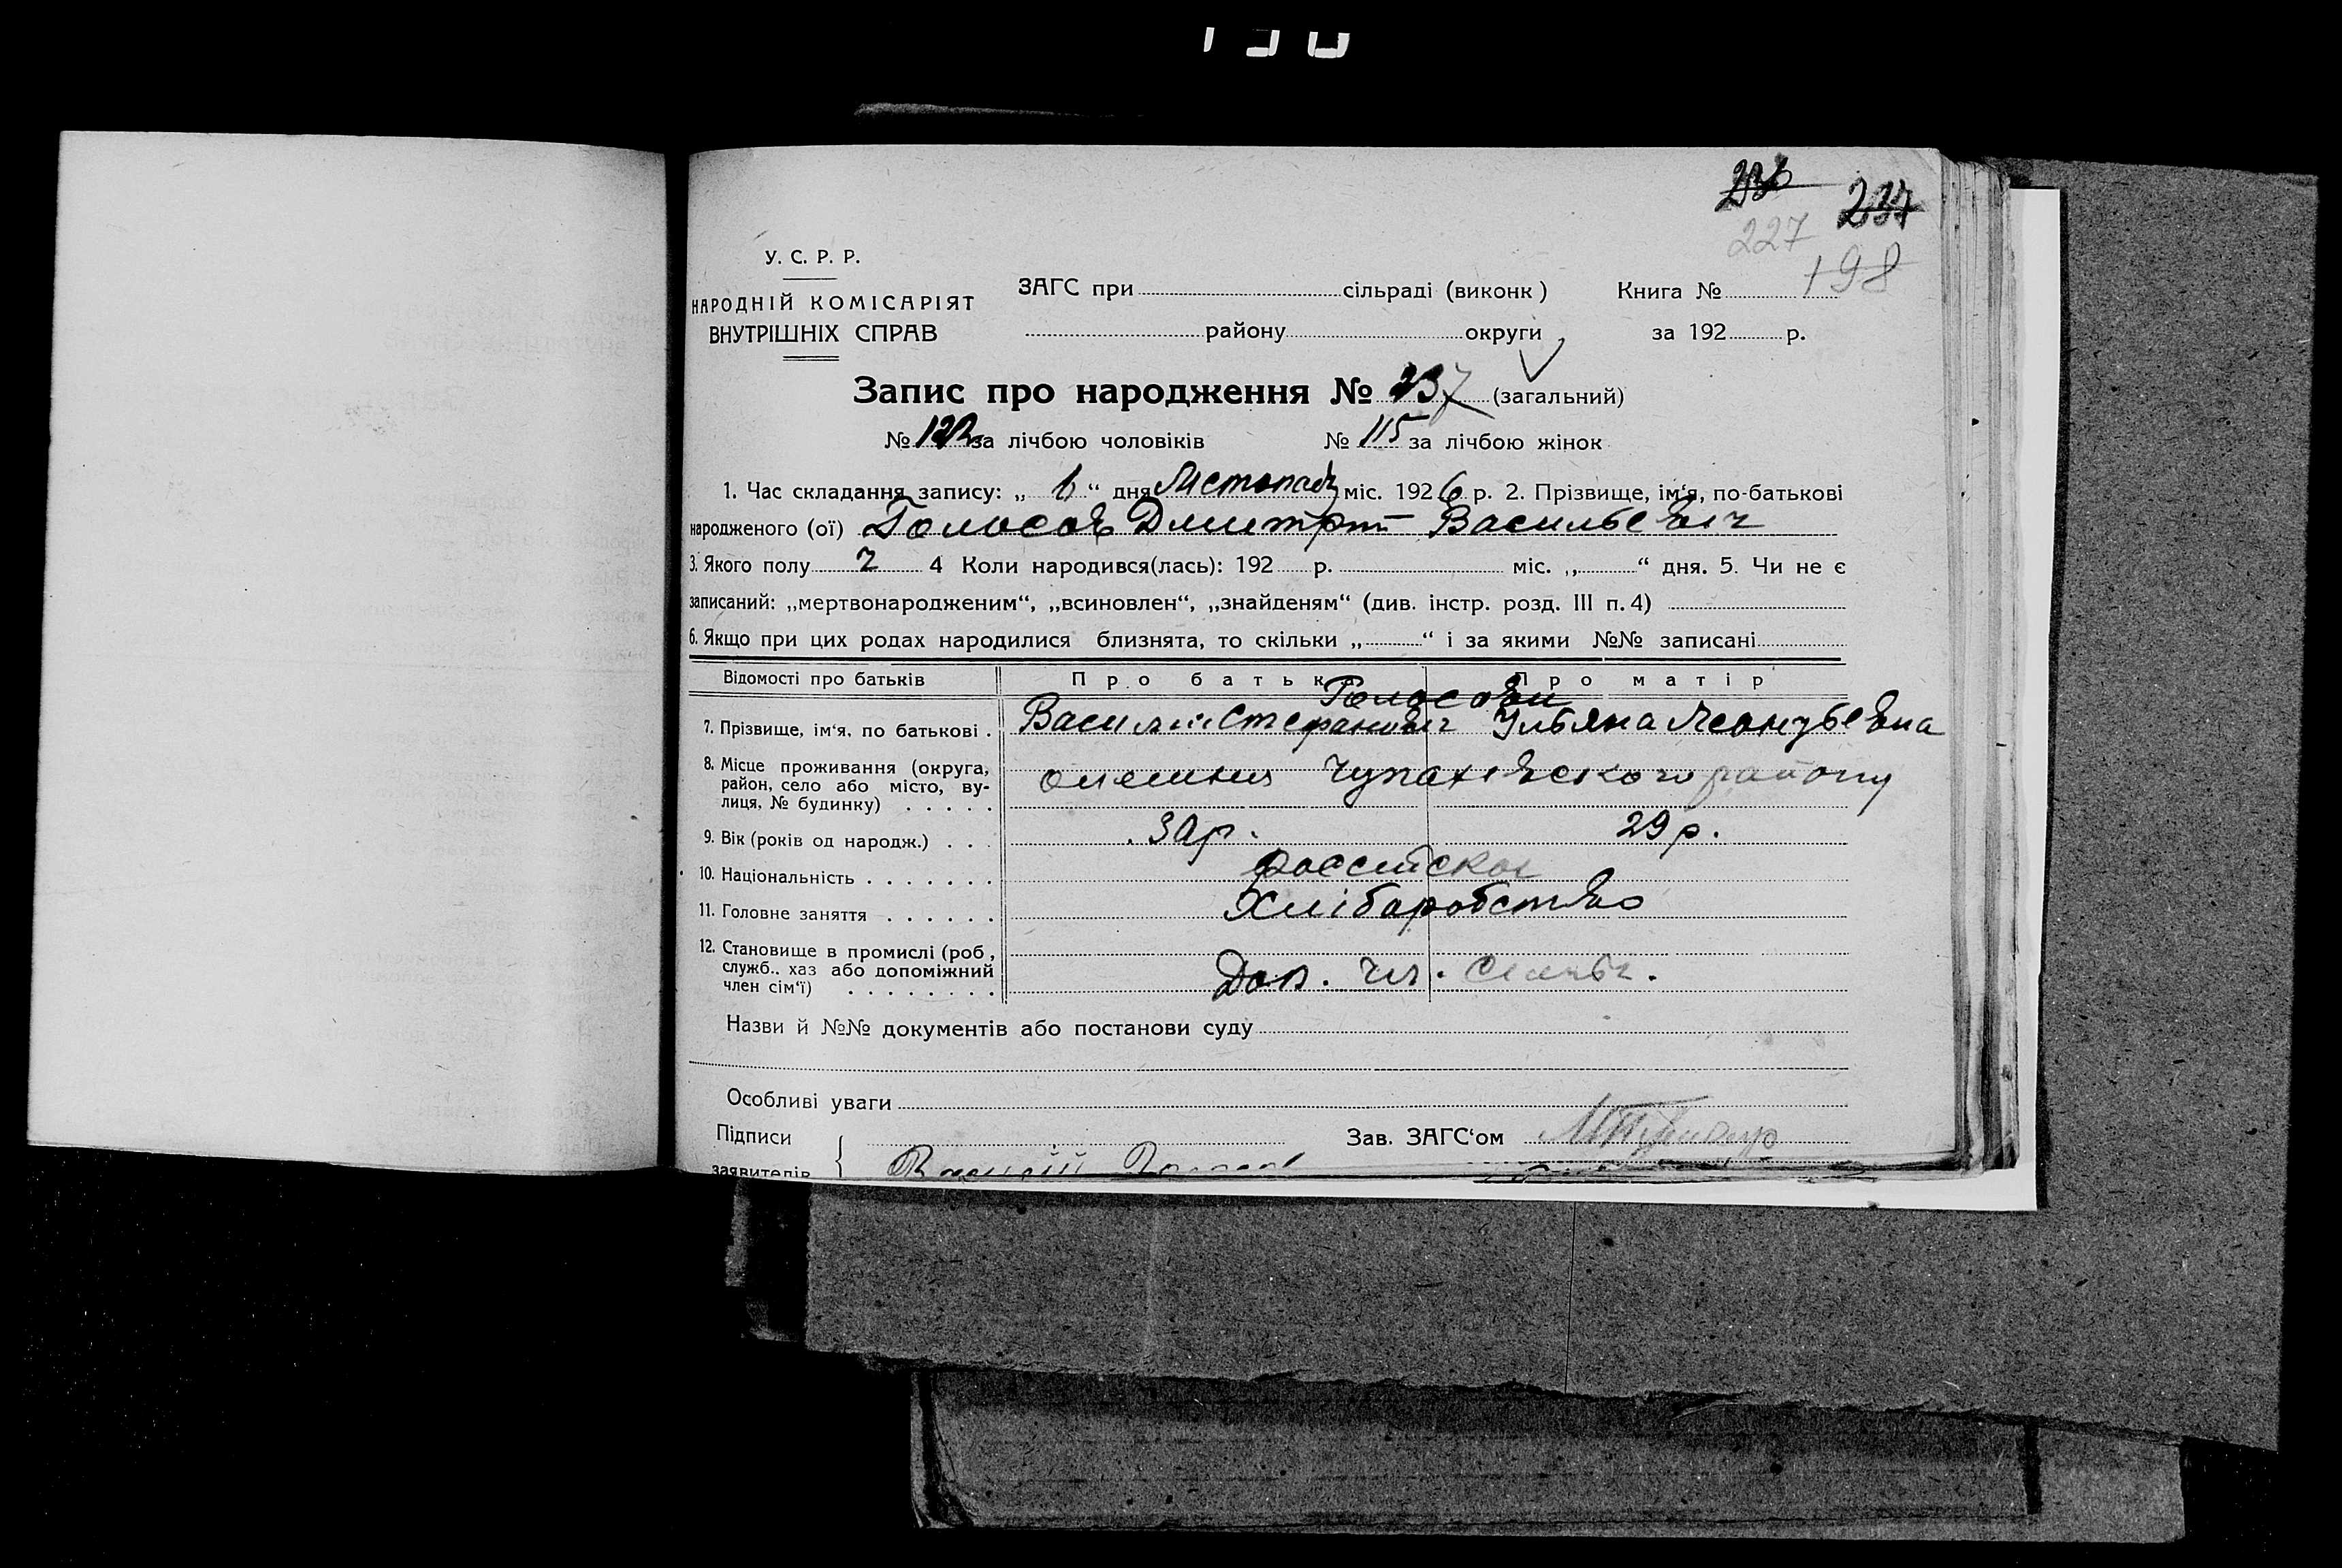 236 237
227
198
У. С. Р. Р.
НАРОДНІЙ КОМІСАРІЯТ
ВНУТРІШНІХ СПРАВ
ЗАГС при сільраді (виконк) Книга №
району округи за 192 р.
Запис про народження № 237 (загальний)
№ 122 за лічбою чоловіків № 115 за лічбою жінок
1. Час складання запису: „ 6 “ дня Листопада міс. 1926 р. 2. Прізвище, ім‘я, по-батькові
народженого (ої) Голосов Дмитрий Васильевич
3. Якого полу ч 4 Коли народився(лась): 192 р. міс. „ “ дня. 5. Чи не є
записаний: „мертвонародженим“, „всиновлен“, „знайденям“ (див. інстр. розд. III п. 4)
6. Якщо при цих родах народилися близнята, то скільки „ “ і за якими №№ записані
Відомості про батьків Про батька Про матір
Голосови
7. Прізвище, ім‘я, по батькові . Василий Стефанович Ульяна
8. Місце проживання (округа,
район, село або місто, ву-
лиця, № будинку) . . . . . Олешня Чупахівского району
9. Вік (років од народж.) . . . 30 р. 29 р.
10. Національність . . . . . . . российской
11. Головне заняття . . . . . . Хлібаробство
12. Становище в промислі (роб,
служб.. хаз або допоміжний
член сім‘ї) . . . . . . . . Доп. чл.
Назви й №№ документів або постанови суду
Особливі уваги
Підписи
заявителів Василий Голосов
Зав. ЗАГС‘ом